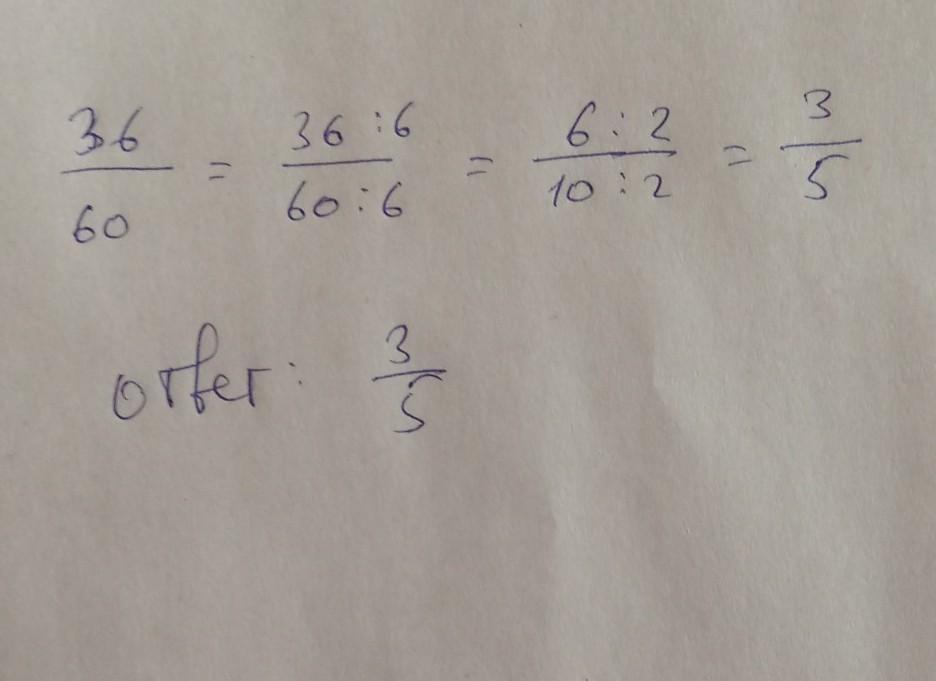 36/60 = 36:6/60:6 = 6:2/10:2 = 3/5
ответ: 3/5